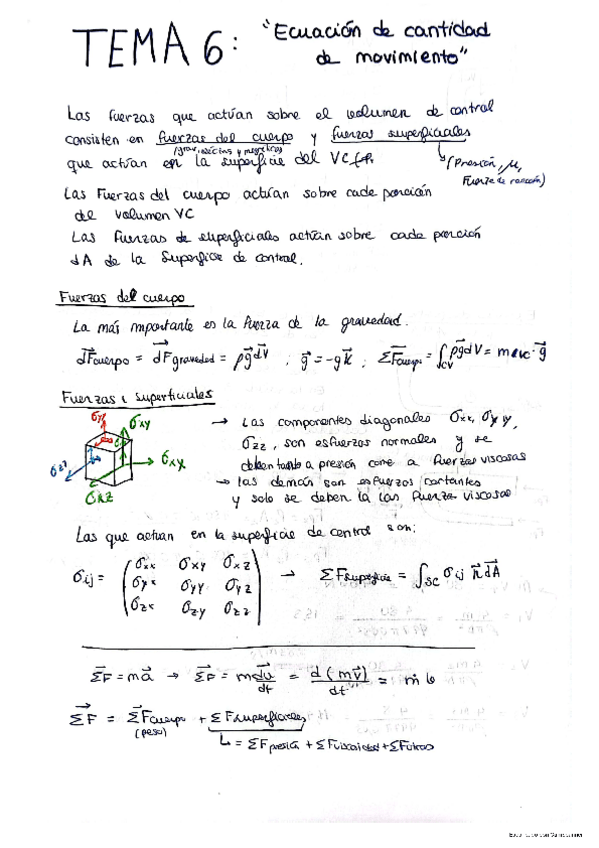 TEMA 6: "Ecuación de cantidad
de movimiento"
Las fuerzas que actúan sobre el volumen de control
consisten en fuerzas del cuerpo y fuerzas superficiales
que actúan en la superficie del VC
(Presión, μ,
Fuerza de reacción)
Las Fuerzas del cuerpo actúan sobre cada porción
del volumen VC
Las fuerzas de superficiales actúan sobre cada porción
dA de la superficie de control.
Fuerzas del cuerpo
La más importante es la fuerza de la gravedad.
dFcuerpo = dFgravedad = ρg⃗dV ; g⃗ = -gk⃗ ; ΣFcuerpo = ∫CV ρg⃗dV = mcvc·g⃗
Fuerzas superficiales
σyy σxy
→ Las componentes diagonales σxx, σyy,
σzz, son esfuerzos normales y se
deben tanto a presión como a fuerzas viscosas
σxz
→ las demás son esfuerzos cortantes
y solo se deben la las fuerzas viscosas
Las que actúan en la superficie de control son:
σij = ( σxx σxy σxz
σyx σyy σyz
σzx σzy σzz ) → ΣFsuperficie = ∫SC σij n⃗ dA
ΣF = ma⃗ → ΣF = m dv⃗/dt = d(mv⃗)/dt = ṁ
ΣF = ΣFcuerpo + ΣFsuperficiales
(peso)
↳ = ΣFpresión + ΣFviscosidad + ΣFotras